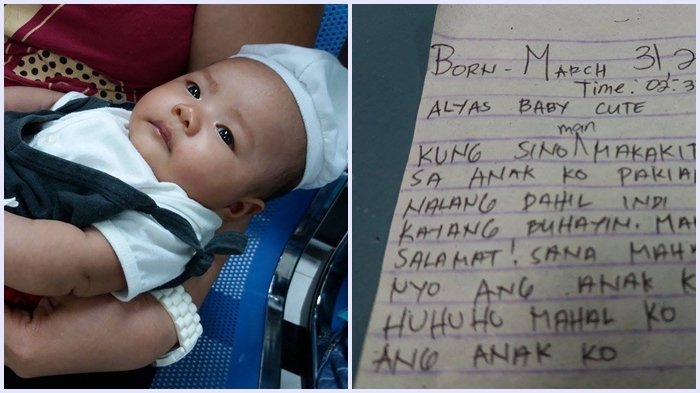 BORN - MARCH 31, 2
Time: 02:3
ALYAS BABY CUTE
KUNG SINO man MAKAKIT
SA ANAK KO
NALANG DAHIL INDI
KAYANG BUHAYIN. MA
SALAMAT! SANA MAH
NYO ANG ANAK K
HUHUHU MAHAL KO
ANG ANAK KO